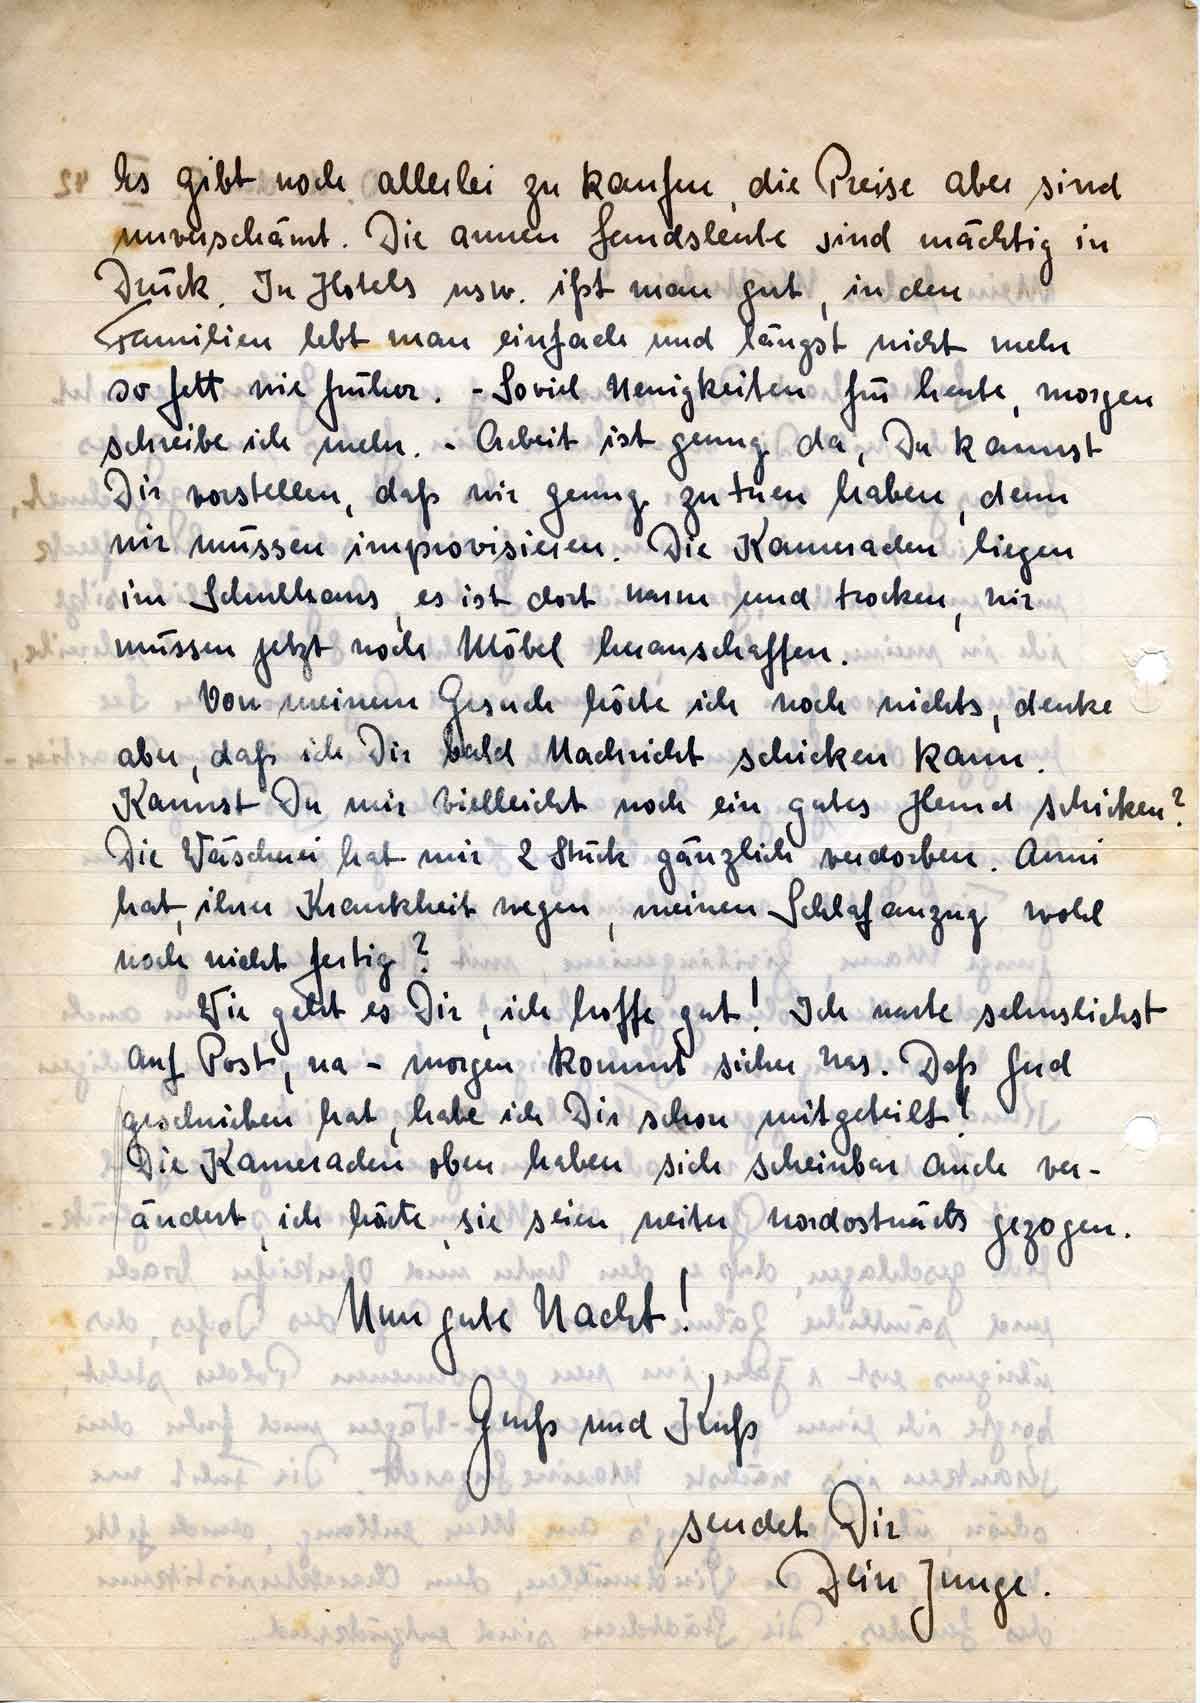 Es gibt noch allerlei zu kaufen, die Preise aber sind
unverschämt. Die armen Landsleute sind mächtig in
Druck. In Hotels usw. ißt man gut, in den
Familien lebt man einfach und längst nicht mehr
so fett wie früher. - Soviel Neuigkeiten für heute, morgen
schreibe ich mehr. - Arbeit ist genug da, Du kannst
Dir vorstellen, daß wir genug zu tuen haben, denn
wir müssen improvisieren. Die Kameraden liegen
im Schulhaus, es ist dort warm und trocken, wir
müssen jetzt noch Möbel heranschaffen.
Von meinem Gesuch hörte ich noch nichts, denke
aber, daß ich Dir bald Nachricht schicken kann.
Kannst Du mir vielleicht noch ein gutes Hemd schicken?
Die Wäscherei hat mir 2 Stück gänzlich verdorben. Anni
hat, ihrer Krankheit wegen, meinen Schlafanzug wohl
noch nicht fertig?
Wie geht es Dir, ich hoffe gut! Ich warte sehnslichst
auf Post, na - morgen kommt sicher was. Daß
geschrieben hat, habe ich Dir schon mitgeteilt!
Die Kameraden oben haben sich scheinbar auch ver-
ändert, ich hörte, sie seien weiter nordostwärts gezogen.
Nun gute Nacht!
Gruß und Kuß
sendet Dir
Dein Junge.